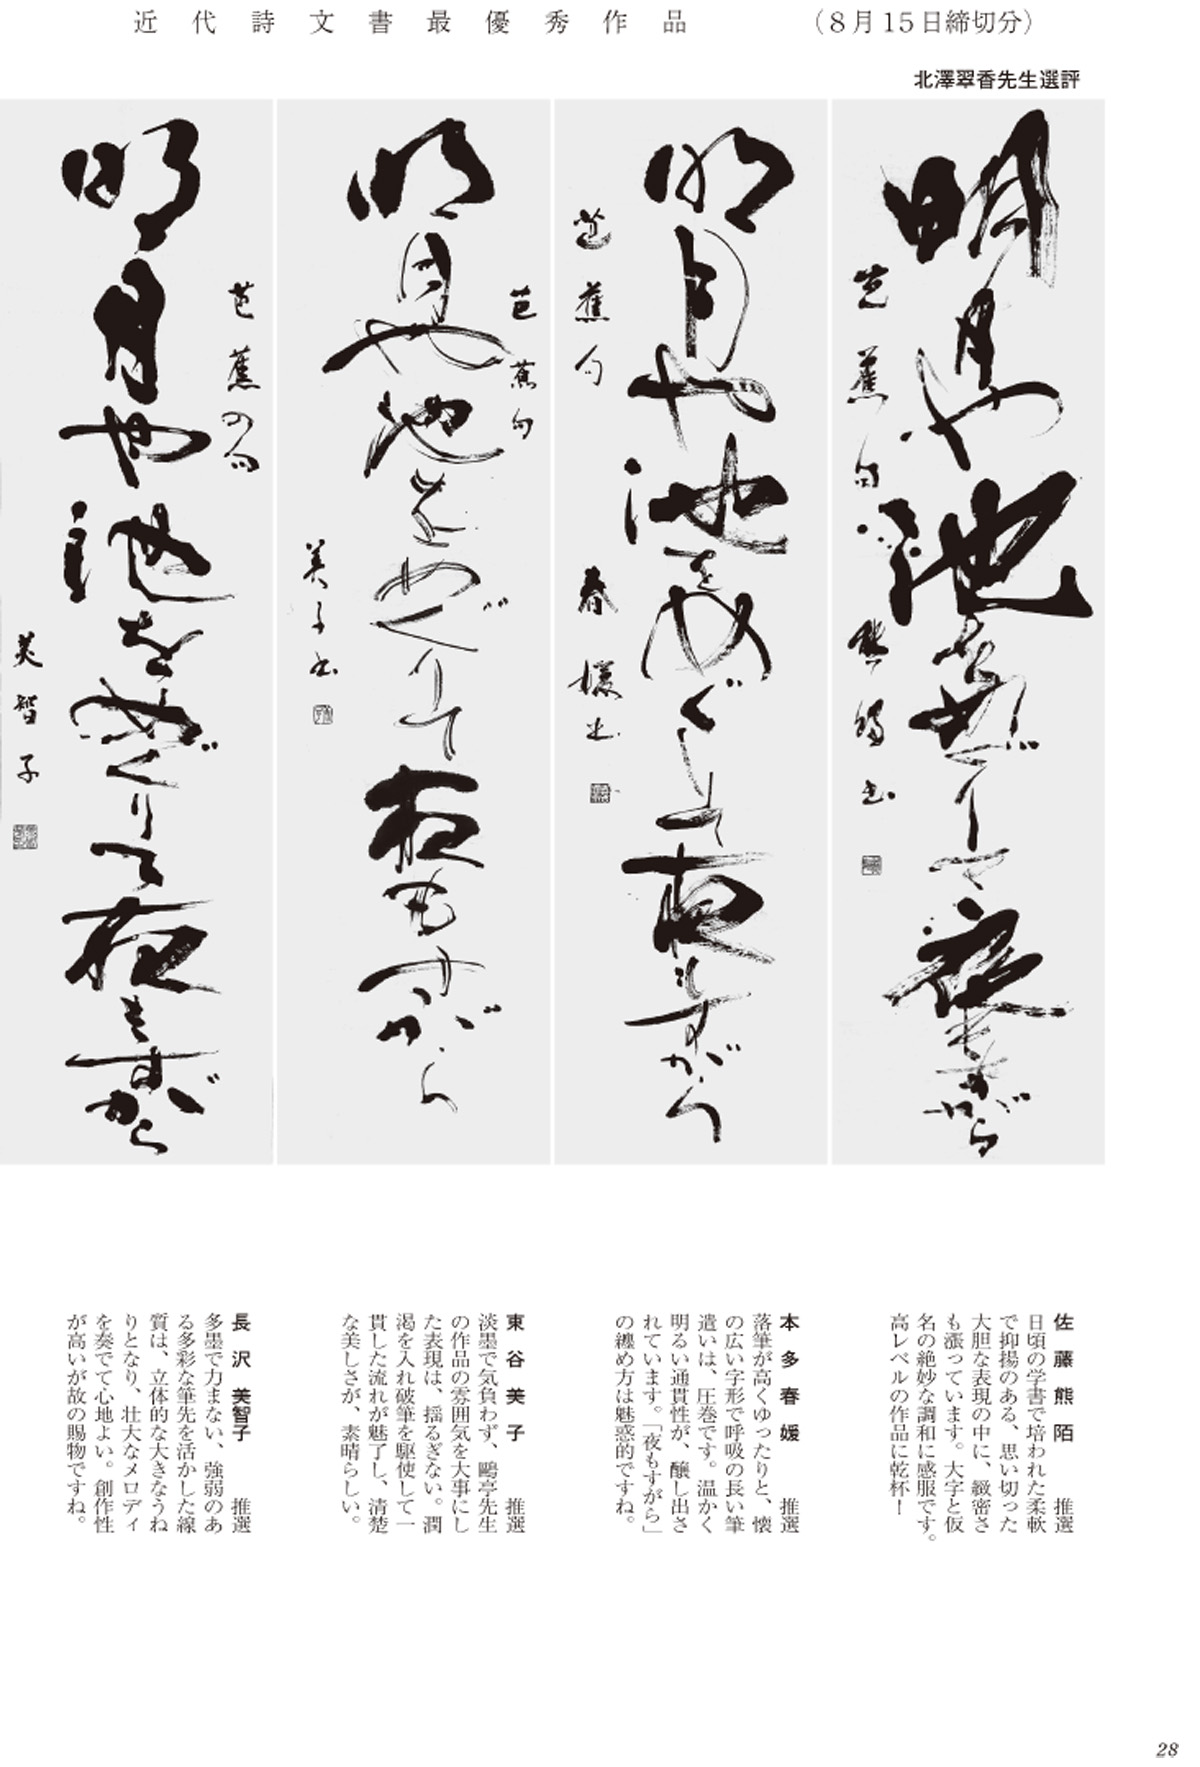 近代詩文書最優秀作品　（8月15日締切分）
北澤翠香先生選評
明月や池をめぐりて夜もすがら
芭蕉句
熊陌書
明月や池をめぐりて夜もすがら
芭蕉句
春媛書
明月や池をめぐりて夜もすがら
芭蕉句
美子書
明月や池をめぐりて夜もすがら
芭蕉の句
美智子
佐藤熊陌　推選
日頃の学書で培われた柔軟
で抑揚のある、思い切った
大胆な表現の中に、緻密さ
も漲っています。大字と仮
名の絶妙な調和に感服です。
高レベルの作品に乾杯！
本多春媛　推選
落筆が高くゆったりと、懐
の広い字形で呼吸の長い筆
遣いは、圧巻です。温かく
明るい通貫性が、醸し出さ
れています。「夜もすがら」
の纏め方は魅惑的ですね。
東谷美子　推選
淡墨で気負わず、鷗亭先生
の作品の雰囲気を大事にし
た表現は、揺るぎない。潤
渇を入れ破筆を駆使して一
貫した流れが魅了し、清楚
な美しさが、素晴らしい。
長沢美智子　推選
多墨で力まない、強弱のあ
る多彩な筆先を活かした線
質は、立体的な大きなうね
りとなり、壮大なメロディ
を奏でて心地よい。創作性
が高いが故の賜物ですね。
28